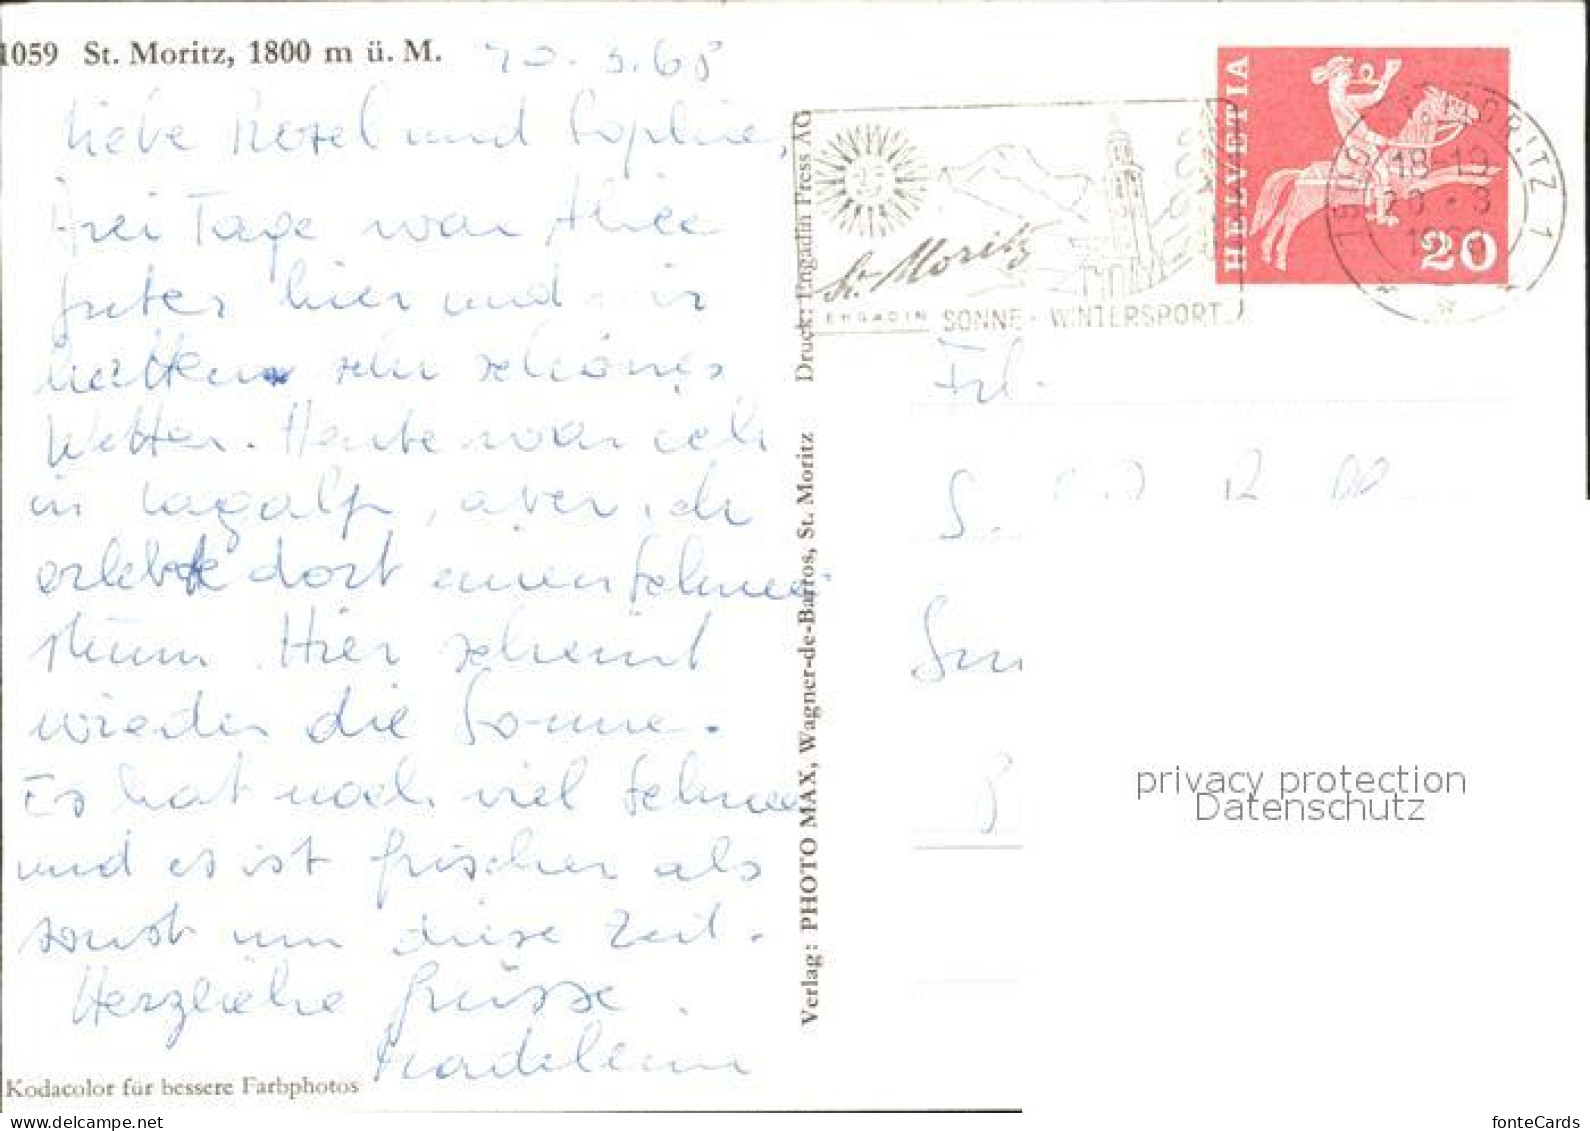 1059 St. Moritz, 1800 m ü. M.
20. 3. 68
Liebe Resel und Sophie,
Drei Tage war Alice
guter hier und wir
hatten sehr schönes
Wetter. Heute war ich
in Lagalp, aber ich
erlebte dort einen Schnee-
sturm. Hier scheint
wieder die Sonne.
Es hat noch viel Schnee
und es ist frischer als
sonst um diese Zeit.
Herzliche Grüsse.
Madeleine
Kodacolor für bessere Farbphotos
Verlag: PHOTO MAX, Wagner-de-Barros, St. Moritz Druck: Engadin Press AG
St. Moritz
ENGADIN SONNE · WINTERSPORT
HELVETIA
20
ST. MORITZ 1
18-19
20.-3
Frl.
privacy protection
Datenschutz
www.delcampe.net
fonteCards